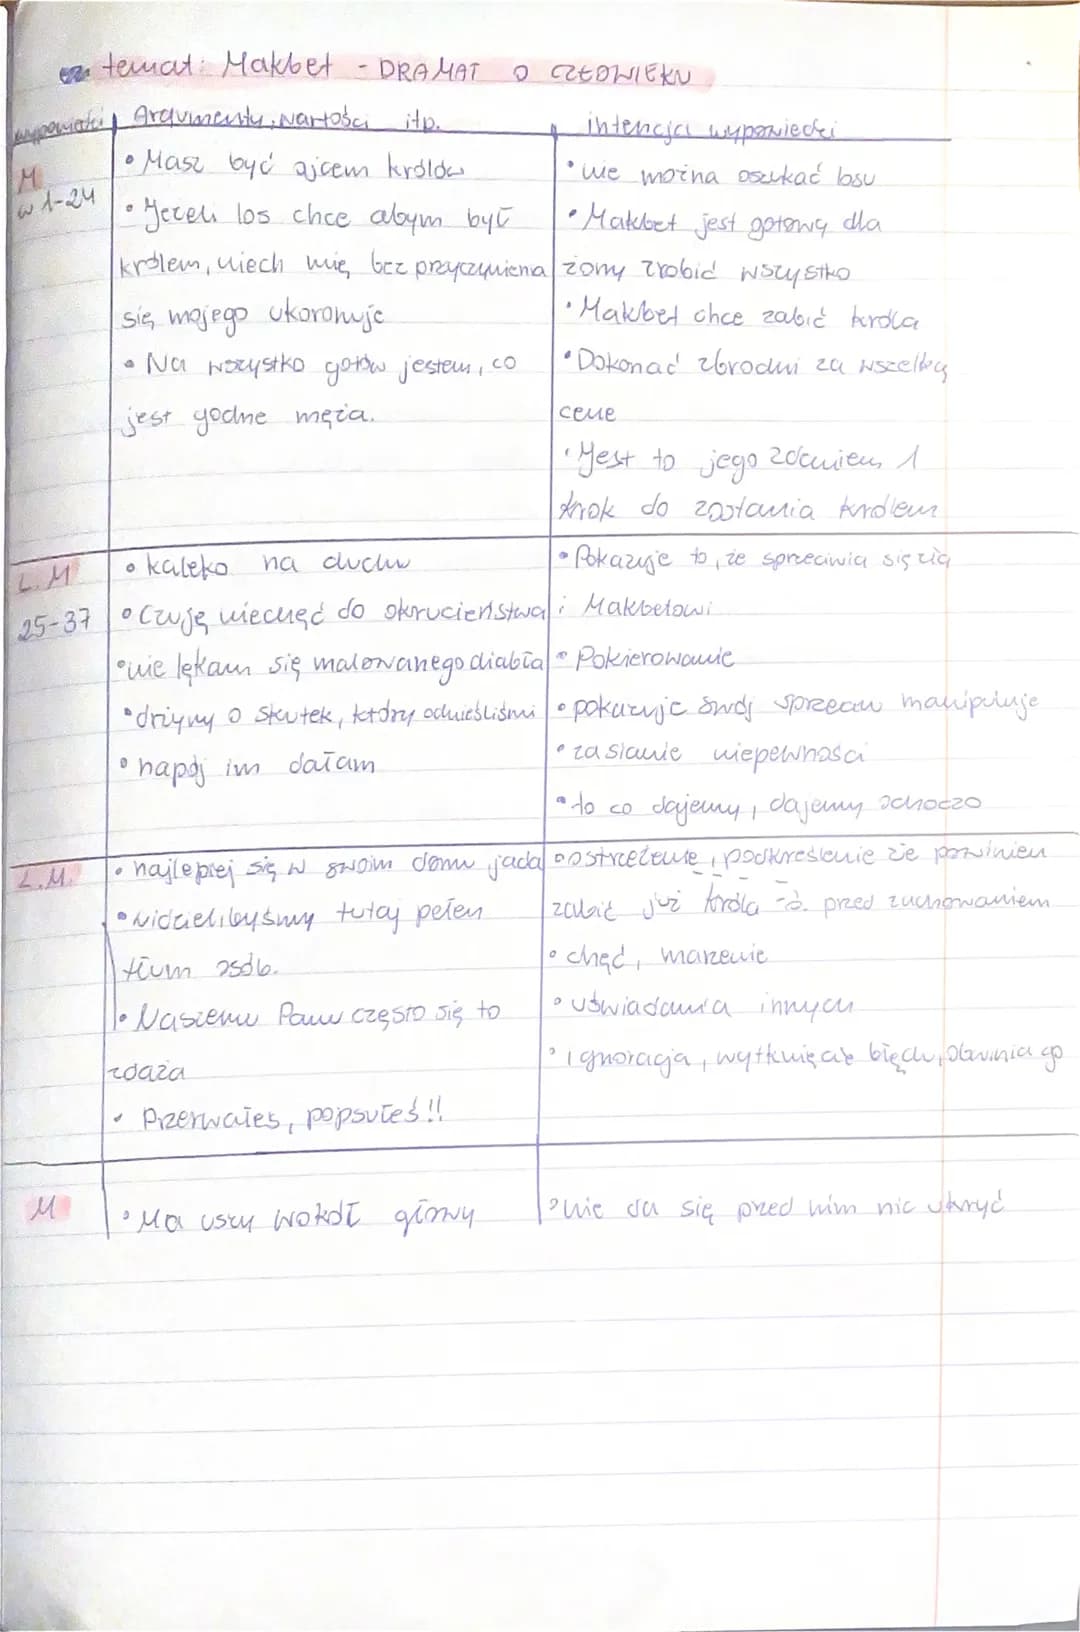 temat: Makbet - DRAMAT O CZŁOWIEKU
wypowiedzi Argumenty, wartości itp. intencja wypowiedzi
M w 1-24
• Masz być ojcem królów
• Jeżeli los chce abym był
królem, niech mię bez przyczynienia
się mojego ukoronuje
• Na wszystko gotów jestem, co
jest godne męża.
• nie można oszukać losu
• Makbet jest gotowy dla
żony zrobić wszystko
• Makbet chce zabić króla
• Dokonać zbrodni za wszelką
cene
• Jest to jego zdaniem 1
krok do zostania królem
L.M 25-37
• kaleko na duchu
• Czuję niechęć do okrucieństwa
• nie lękam się malowanego diabła
• drżymy o skutek, który odnieśliśmi
• napój im dałam
• Pokazuje to, że sprzeciwia się zią
i Makbetowi
• Pokierowanie
• pokazuje swój sprzeciw manipuluje
• zasianie niepewności
• to co dajemy, dajemy ochoczo
L.M.
• najlepiej się w swoim domu jada
• widzielibyśmy tutaj pełen
tłum osób.
• Naszemu Panu często się to
zdaża
• Przerwałeś, popsułeś!!
• ostrzeżenie, podkreślenie że powinien
zabić już króla - przed zachowaniem
• chęć, marzenie
• uświadamia innych
• ignoracja, wytknięcie błędu, obwinia go
M
• Ma uszy wokół głowy
• nie da się przed nim nic ukryć